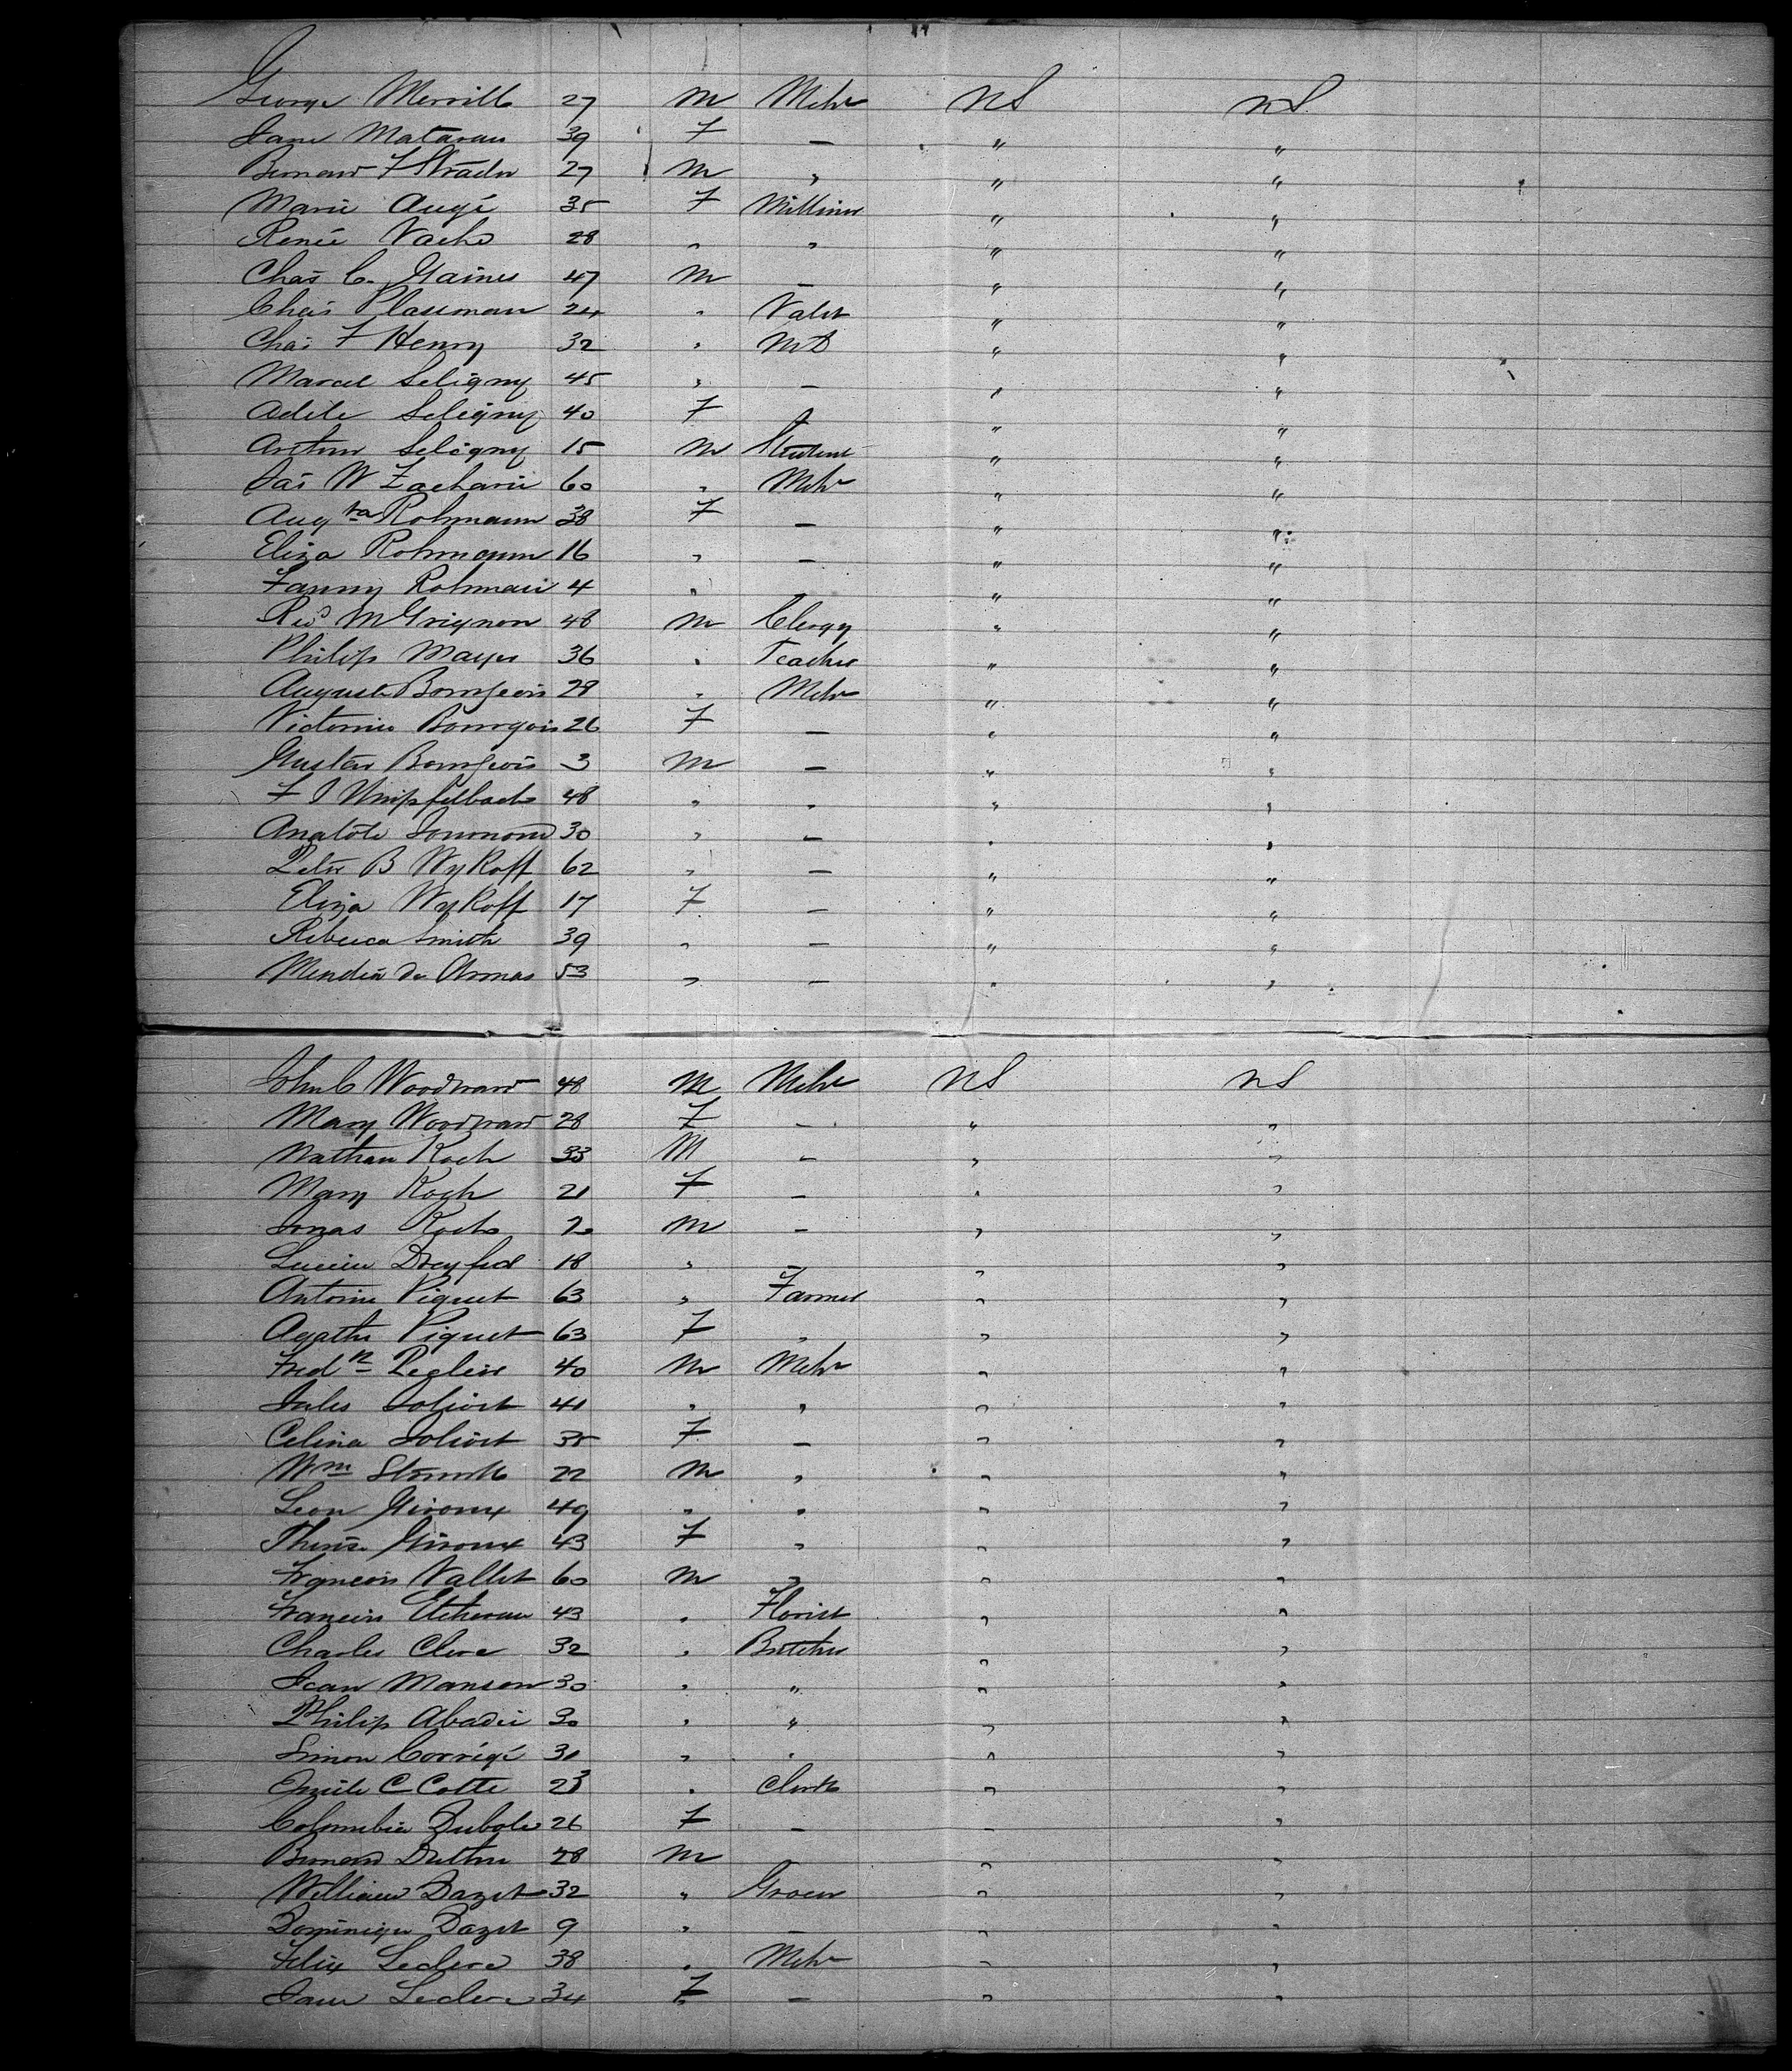 George Merrill 27 M Mcht US US
Jane Mataran 39 F — " "
Bernard F Strader 27 M " " "
Marie Augé 35 F Milliner " "
Renée Vache 28 " " " "
Chas C. Gaines 47 M — " "
Chas Plassman 24 " Valet " "
Chas F Henry 32 " MD " "
Marcel Seligny 45 " — " "
Adele Seligny 40 F " " "
Arthur Seligny 15 M Student " "
Jas W Zacharie 60 " Mcht " "
Augta Rohmann 38 F — " "
Eliza Rohmann 16 " — " "
Fanny Rohmann 4 " — " "
Revd M Grignon 48 M Clergy " "
Philip Mayer 36 " Teacher " "
Auguste Bourgeois 28 " Mcht " "
Victorine Bourgois 26 F — " "
Gustav Bourgeois 3 M — " "
F J Umpfelbach 48 " " " "
Anatole 30 " — " "
Peter B Wykoff 62 " — " "
Eliza Wykoff 17 F — " "
Rebecca Smith 39 " — " "
de Armas 53 " — " "
John C Woodward 48 M Mcht US US
Mary Woodward 28 F — " "
Nathan Koch 33 M — " "
Mary Koch 21 F — " "
Jonas Koch M — " "
Lucien Dreyfus 18 " — " "
Antoine Piquet 63 " Farmer " "
Agathe Piquet 63 F " " "
Fredk 40 M Mcht " "
Jules Joliort 41 " " " "
Celina Joliort 35 F — " "
Wm 22 M " " "
Leon Giroux 49 " " " "
Therese Giroux 43 F " " "
Francois Vallet 60 M " " "
Francois 43 " Florist " "
Charles Clerc 32 " Butcher " "
Jean Manson 30 " " " "
Philip Abadie 30 " " " "
Simon Corrégé 31 " " " "
Emile C Cotte 23 " Clerk " "
Colombia Dubole 26 F — — "
Bernard 28 M — " "
William Dazet 32 " Grocer " "
Dominique Dazet 9 " — " "
Felix Leclerc 38 " Mcht " "
Jane Leclerc 34 F — " "